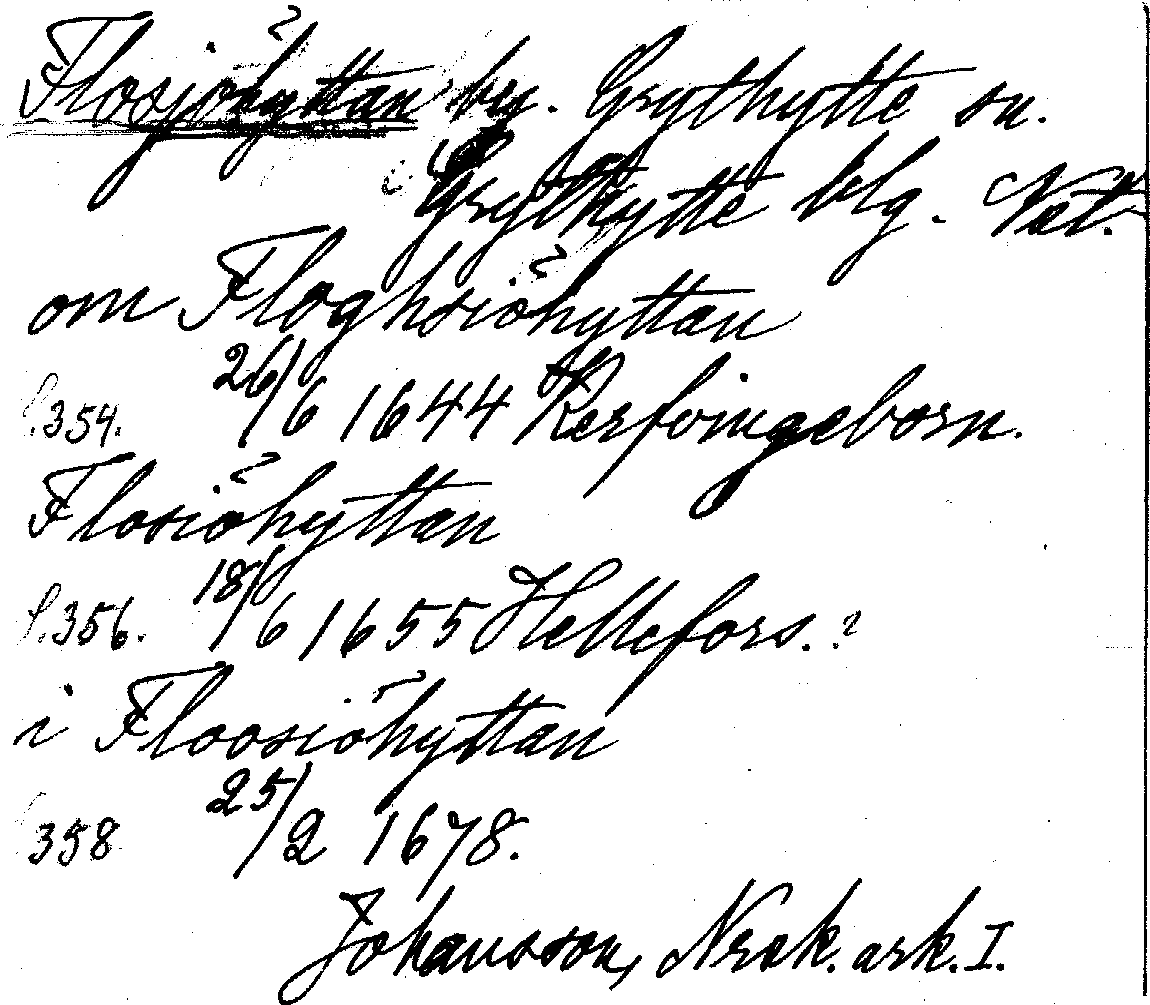 Flosjöhyttan by. Grythytte sn.
Grythytte blg. Vstl.
om Floghsiöhyttan
s.354. 26/6 1644 Kerfvingeborn.
Flosiöhyttan
s.356. 18/6 1655 Hellefors.
i Floosiöhyttan
358 25/2 1678.
Johansson, Nrsk. ark. I.